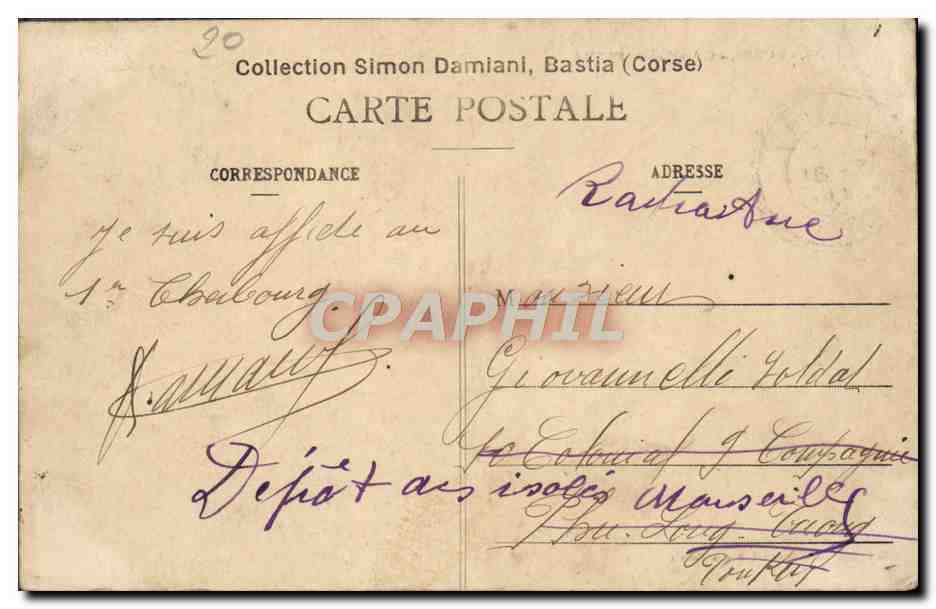 20
Collection Simon Damiani, Bastia (Corse)
CARTE POSTALE
CORRESPONDANCE
Je suis affecté au
1er Cherbourg
ADRESSE
Monsieur
Giovannelli Soldat
10e Colonial 9 Compagnie
Phu-Lang-Thuong
Tonkin
Dépôt des isolés Marseille
CPAPHIL